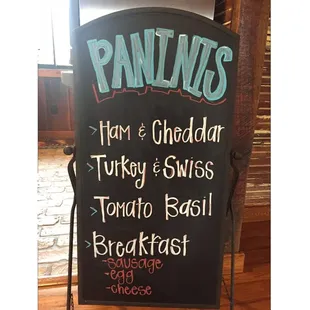 PANINIS
>Ham & Cheddar
>Turkey & Swiss
>Tomato Basil
>Breakfast
-sausage
-egg
-cheese